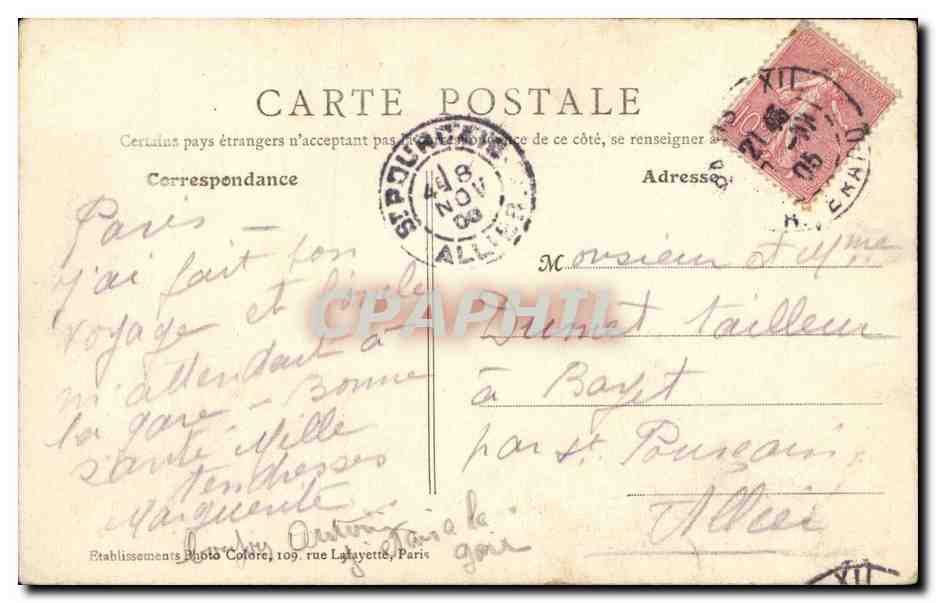 CARTE POSTALE
Certains pays étrangers n'acceptant pas la correspondance de ce côté, se renseigner à
Correspondance
Adresse
Paris –
j'ai fait bon
voyage et l'oncle
m'attendait à
la gare – Bonne
santé Mille
tendresses
Marguerite
Antoine
était à la
gare
Monsieur et Mme
Dumet tailleur
à Bayet
par St. Pourçain
Allier
ST POURÇAIN
8
NOV
ALLIER
XII
21
05
CPAPHIL
Etablissements Photo Colore, 109. rue Lafayette, Paris
XII